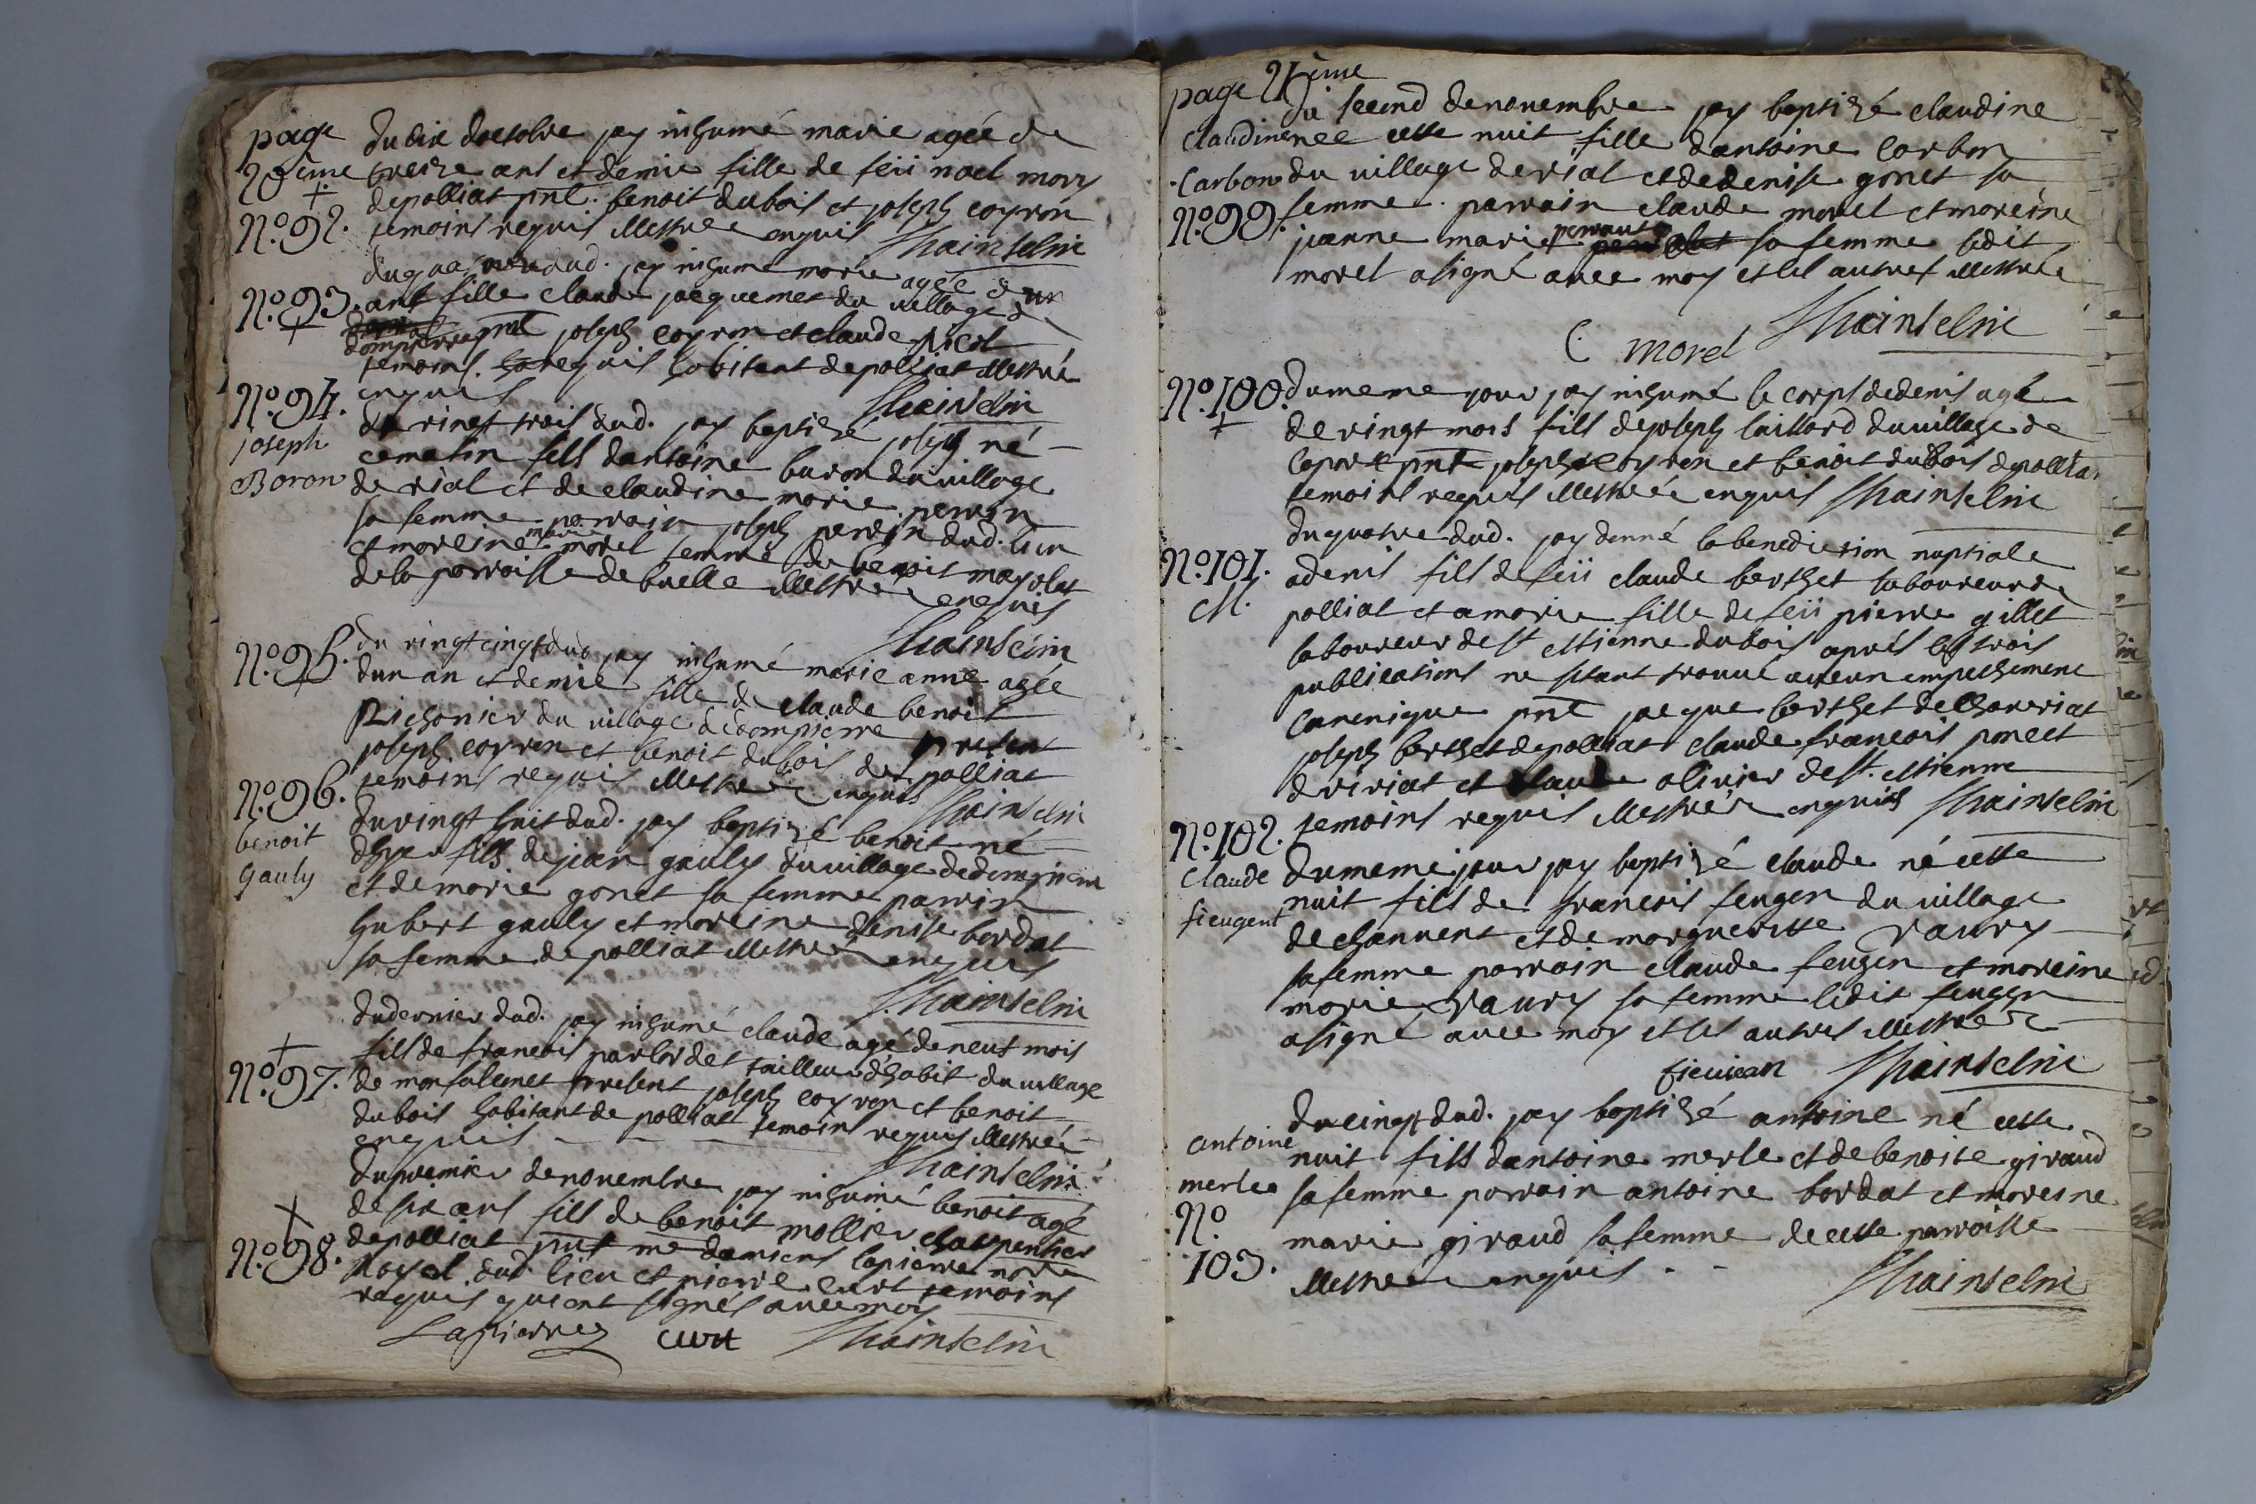 page
20eme
+
N.º 92.
du dix doctobre jay inhumé marie agée de
treize ans et demie fille de feii noel mory
depolliat pnt. benoit dubois et joseph coyron
temoins requis illestrée enquis
Thainselin
N.º 93.
+
dud. jay inhumé marie agée dun
ans fille claude jacquemet du village d
dompierre pnt joseph coyron et claude picol
temoins requis habitant depolliat illestrée
enquis
Thainselin
N.º 94.
joseph
Boron
du vingt trois dud. jay baptizé joseph né
cematin fils dantoine buron du village
de rial et de claudine marie perrin
sa femme parrain joseph perrin dud. lieu
et moreine marie morel femme de benoit mayolet
dela parroisse de buelle illestrée enquis
Thainselin
N.º 95.
du vingt cinq dud jay inhumé marie anne agée
dun an et demie fille de claude benoit
pichonier du village de dompierre present
joseph coyron et benoit dubois de polliat
temoins requis illestrée enquis
Thainselin
N.º 96.
benoit
gauly
du vingt huit dud. jay baptizé benoit né
dhyer fils de jean gauly du village dedompierre
et de marie gonet sa femme parrin
hubert gauly et moreine denise bordat
sa femme de polliat illestrée enquis
Thainselin
+
N.º 97.
dudernier dud. jay inhumé claude agé deneuf mois
fils de francois parlordet tailleur dhabit du village
de monfalconet present joseph coyron et benoit
dubois habitant de polliat temoins requis illestrée
enquis
Thainselin
+
N.º 98.
dupremier denovembre jay inhumé benoit agé
de six ans fils de benoit mollier charpentier
depolliat pnt me damiens lapierre nore
Royal dud lieu et pierre curt temoins
requis qui ont signés avec moy
Lapierre curt Thainselin
page 21eme
Claudine
Carbon
N.º 99.
du second denovembre jay baptizé claudine
nee cette nuit fille dantoine corbon
du village de rial et dedenise gonet sa
femme. parrain claude morel et moreine
jeanne marie perraut sa femme ledit
morel a signé avec moy et les autres illestrée
C. morel Thainselin
N.º 100.
+
dumeme jour jay inhumé le corps dedenis agé
de vingt mois fils dejoseph laillard du village de
pnt joseph coyron et benoit dubois depolliat
temoins requis illestrée enquis Thainselin
N.º 101.
M.
duquatre dud. jay donné la benediction nuptiale
adenis fils de feii claude berthet laboureur de
polliat et amarie fille de feii pierre gillet
laboureur de St estienne dubois aprés les trois
publications ne sétant trouvé aucun empeschement
canonique pnt jacque berthet de chaveriat
joseph berthet depolliat claude francois poncet
dviriat et claude olivier de St. estienne
temoins requis illestrée enquis Thainselin
N.º 102.
claude
fieugent
dumeme jour jay baptizé claude né cette
nuit fils de francois feugen du village
de chanvent et de marguerite vaury
sa femme parrain claude feugen et moreine
marie vaury sa femme ledit feugen
a signé avec moy et les autres illestrée
fieuian Thainselin
antoine
merle
N.º
103.
du cinq dud. jay baptizé antoine né cette
nuit fils dantoine merle et de benoite giraud
sa femme parrain antoine bordat et moreine
marie giraud sa femme de cette parroisse
illestrée enquis - -
Thainselin